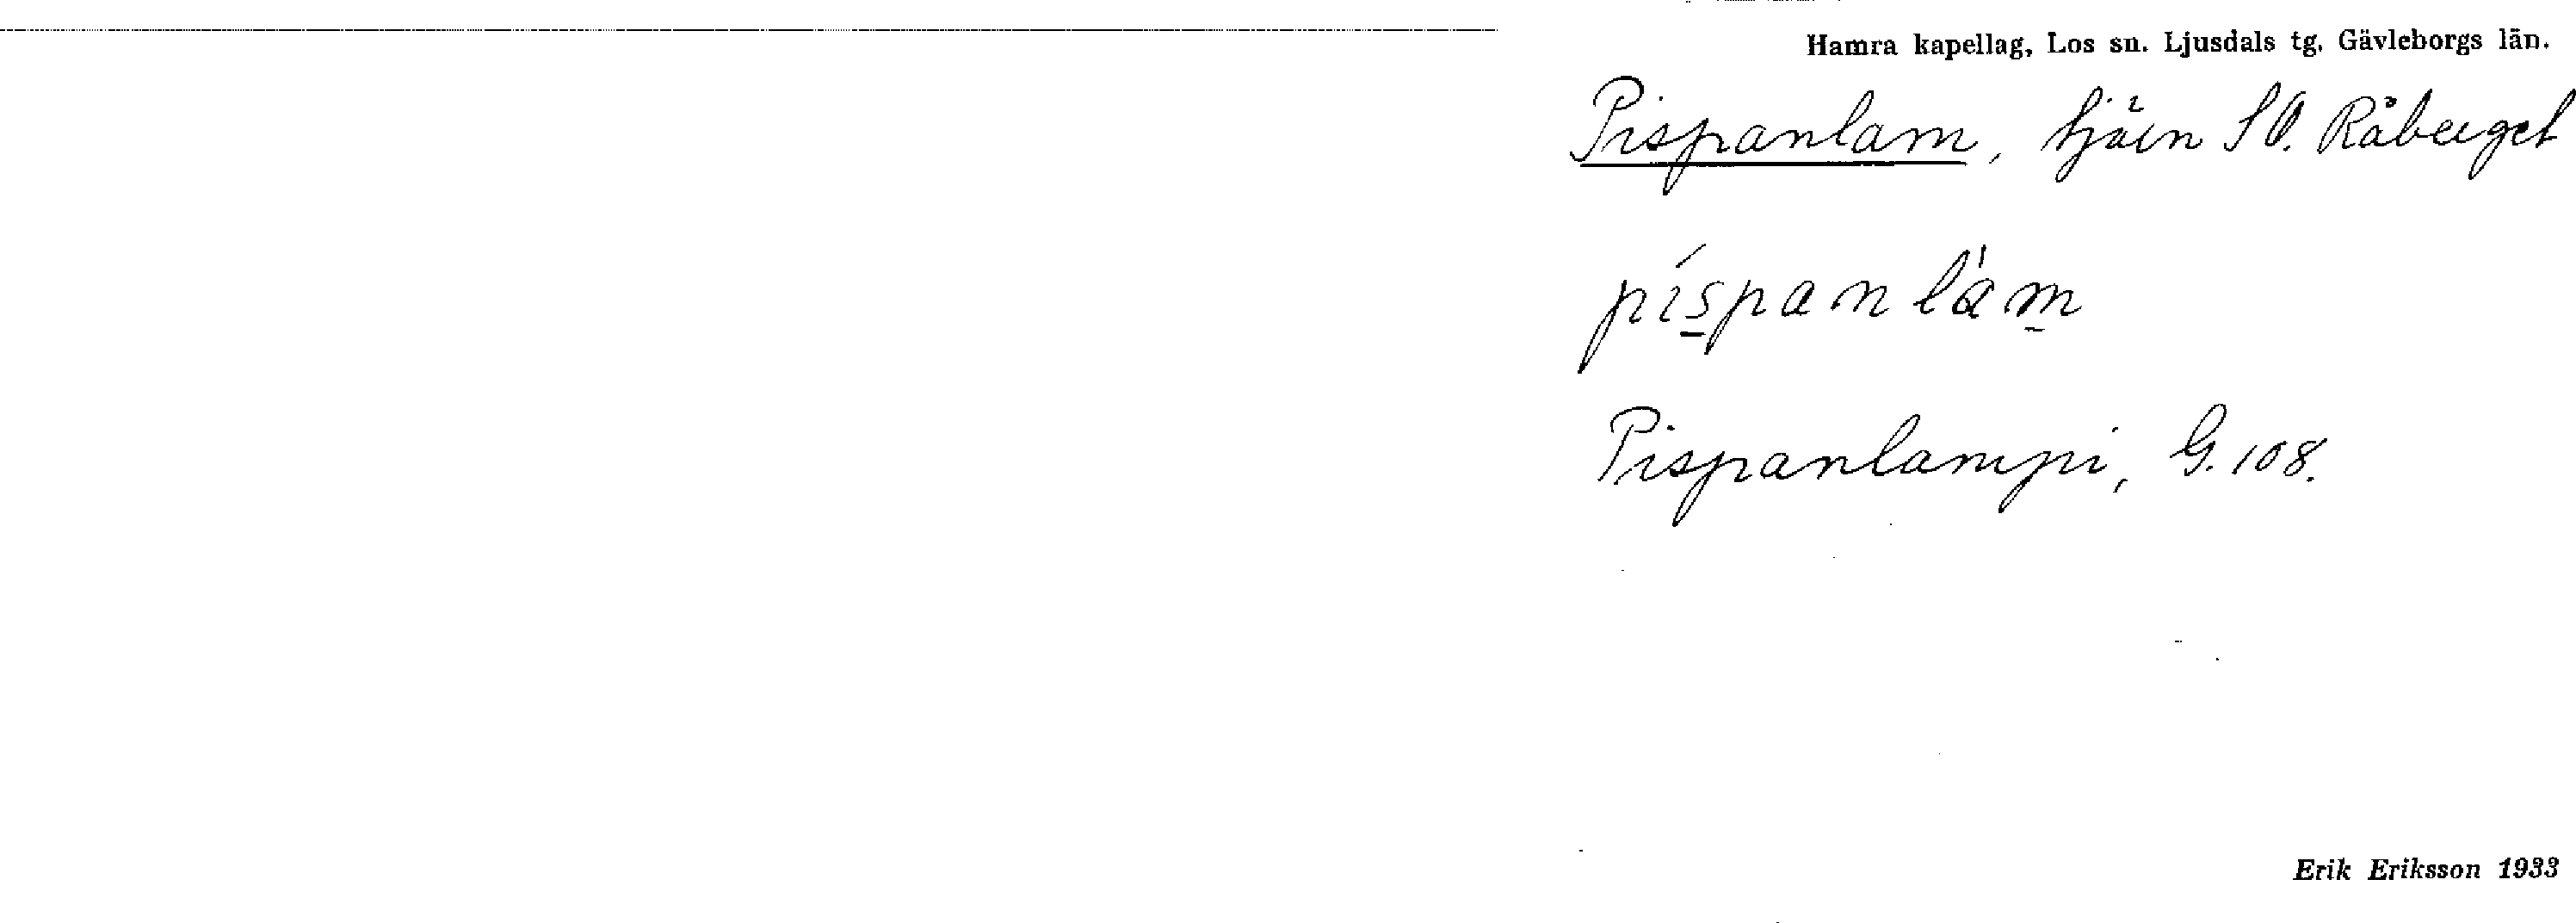 Hamra kapellag, Los sn. Ljusdals tg. Gävleborgs län.
Pispanlam, tjärn SO. Råberget
píspanlàm
Pispanlampi, G. 108.
Erik Eriksson 1933